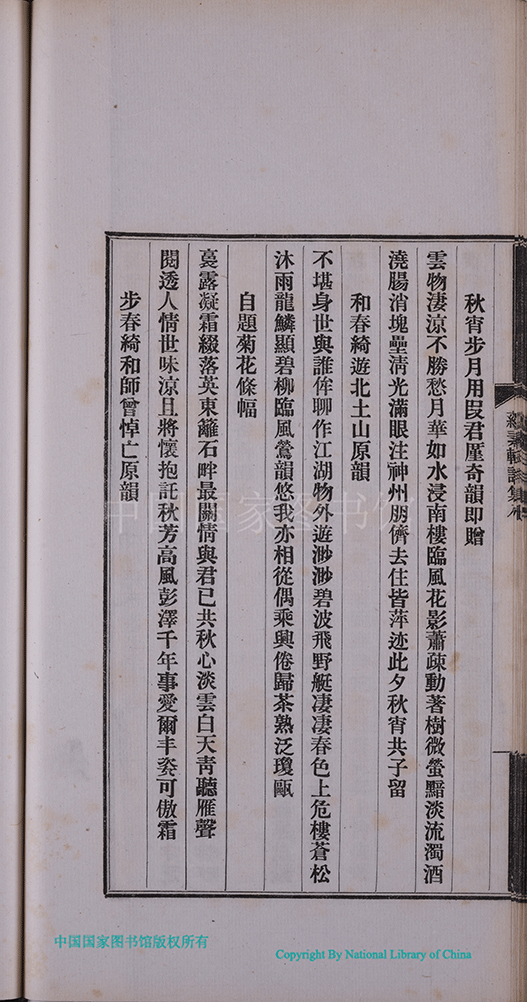 秋宵步月用叚君厪奇韻即贈
雲物淒涼不勝愁月華如水浸南樓臨風花影蕭疎動著樹微螢黯淡流濁酒
澆腸消塊壘淸光滿眼注神州朋儕去住皆萍迹此夕秋宵共子留
和春綺遊北土山原韻
不堪身世與誰侔聊作江湖物外遊渺渺碧波飛野艇凄凄春色上危樓蒼松
沐雨龍鱗顯碧柳臨風鶯韻悠我亦相從偶乘興倦歸茶熟泛瓊甌
自題菊花條幅
裛露凝霜綴落英東籬石畔最關情與君已共秋心淡雲白天靑聽雁聲
閱透人情世味涼且將懷抱託秋芳高風彭澤千年事愛爾丰姿可傲霜
步春綺和師曾悼亡原韻
中国国家图书馆
中国国家图书馆版权所有
Copyright By National Library of China